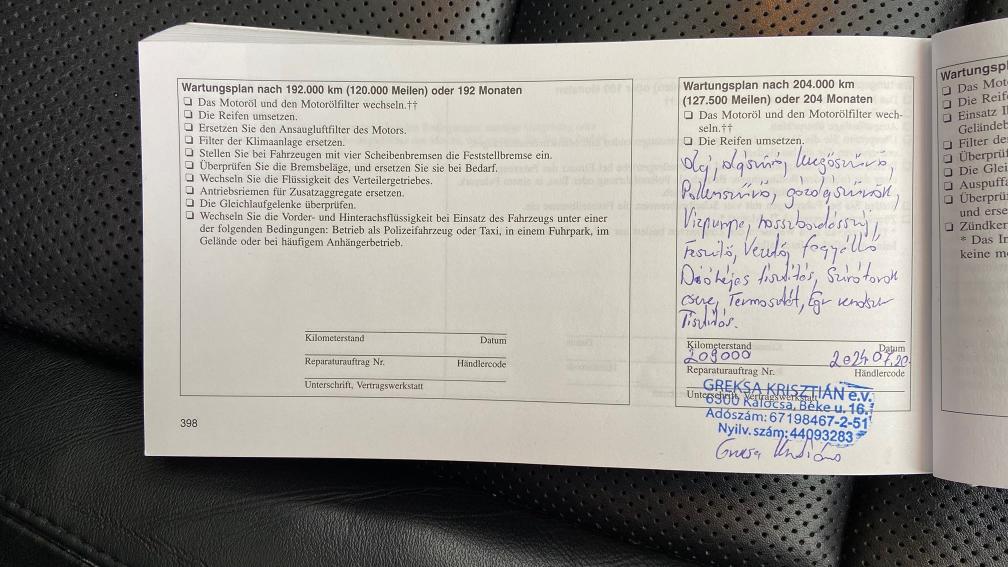 Wartungsplan nach 192.000 km (120.000 Meilen) oder 192 Monaten
❏ Das Motoröl und den Motorölfilter wechseln.††
❏ Die Reifen umsetzen.
❏ Ersetzen Sie den Ansaugluftfilter des Motors.
❏ Filter der Klimaanlage ersetzen.
❏ Stellen Sie bei Fahrzeugen mit vier Scheibenbremsen die Feststellbremse ein.
❏ Überprüfen Sie die Bremsbeläge, und ersetzen Sie sie bei Bedarf.
❏ Wechseln Sie die Flüssigkeit des Verteilergetriebes.
❏ Antriebsriemen für Zusatzaggregate ersetzen.
❏ Die Gleichlaufgelenke überprüfen.
❏ Wechseln Sie die Vorder- und Hinterachsflüssigkeit bei Einsatz des Fahrzeugs unter einer
der folgenden Bedingungen: Betrieb als Polizeifahrzeug oder Taxi, in einem Fuhrpark, im
Gelände oder bei häufigem Anhängerbetrieb.
Kilometerstand Datum
Reparaturauftrag Nr. Händlercode
Unterschrift, Vertragswerkstatt
398
Wartungsplan nach 204.000 km
(127.500 Meilen) oder 204 Monaten
❏ Das Motoröl und den Motorölfilter wech-
seln.††
❏ Die Reifen umsetzen.
Olaj, olajszűrő, levegőszűrő,
Pollenszűrő, gázolajszűrők,
Vízpumpa, hosszbordásszíj,
Feszítő, Vezető,
Dióhéjas tisztítás,
csere, Termosztát, Egr rendszer
Tisztítás.
Kilometerstand Datum
209000 2024.07.20
Reparaturauftrag Nr. Händlercode
Unterschrift, Vertragswerkstatt
GREKSA KRISZTIÁN e.v.
6300 Kalocsa, Béke u. 16.
Adószám: 67198467-2-51
Nyilv.szám: 44093283
Greksa Krisztián
Wartungspl
❏ Das Moto
❏ Die Reife
❏ Einsatz I
Geländeb
❏ Filter de
❏ Überprüf
❏ Die Glei
❏ Auspuffa
❏ Überprü
und erse
❏ Zündker
* Das In
keine m